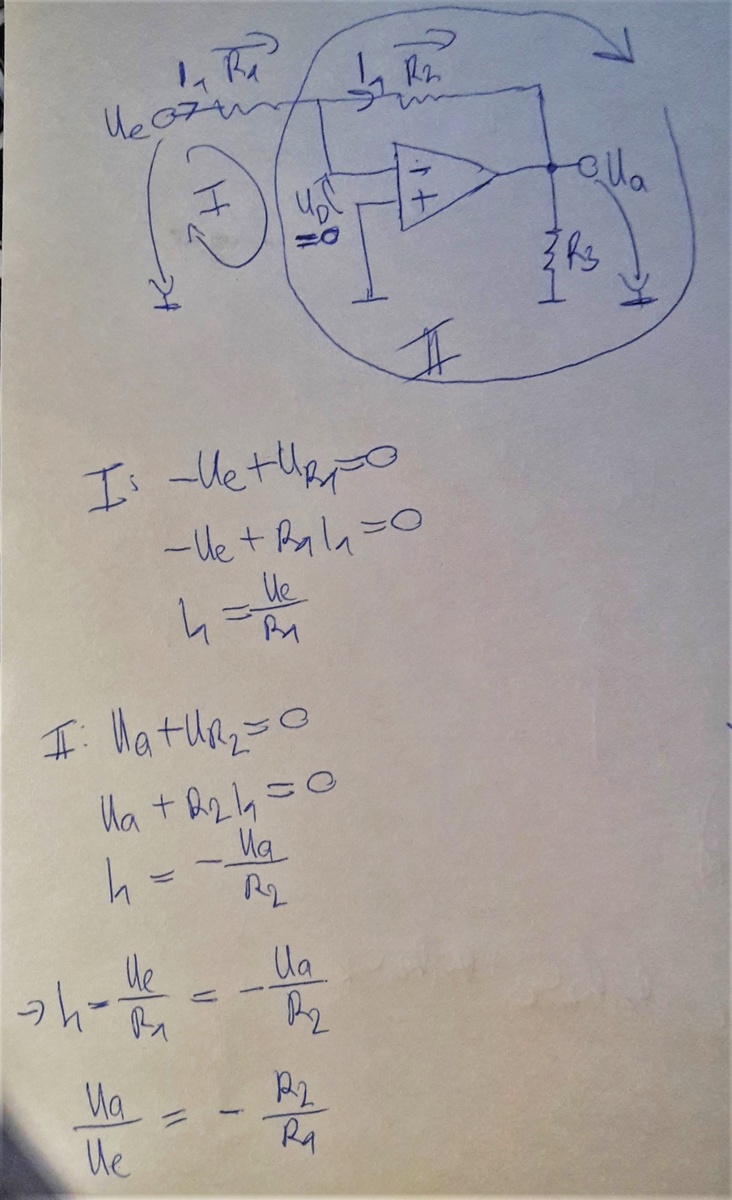 I₁ R₁ I₁ R₂
Ue
I
U_D
=0
-
+
Ua
R₃
II
I: -Ue+U_R₁=0
-Ue + R₁I₁=0
I₁ = Ue/R₁
II: Ua+U_R₂=0
Ua + R₂I₁=0
I₁ = - Ua/R₂
→ I₁ = Ue/R₁ = - Ua/R₂
Ua/Ue = - R₂/R₁